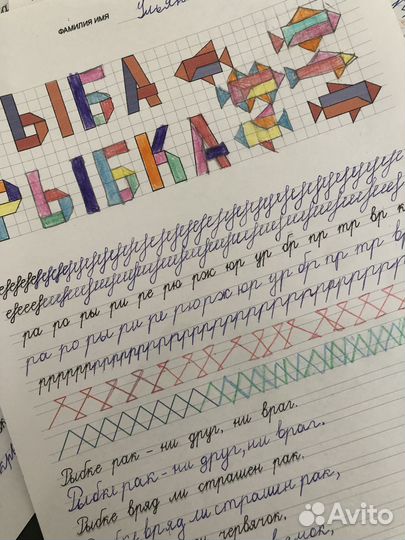 ФАМИЛИЯ ИМЯ Улья
ЫБА
РЫБКА
ра ро ры ри ре рю рж юр ур бр пр тр вр к
ра ро ры ри ре рю рж юр ур бр пр тр вр
рррррррррррррррррррррррр
Рыбке рак - ни друг, ни враг.
Рыбке рак - ни друг, ни враг.
Рыбке вряд ли страшен рак.
Рыбке вряд ли страшен рак,
червячок.
Avito